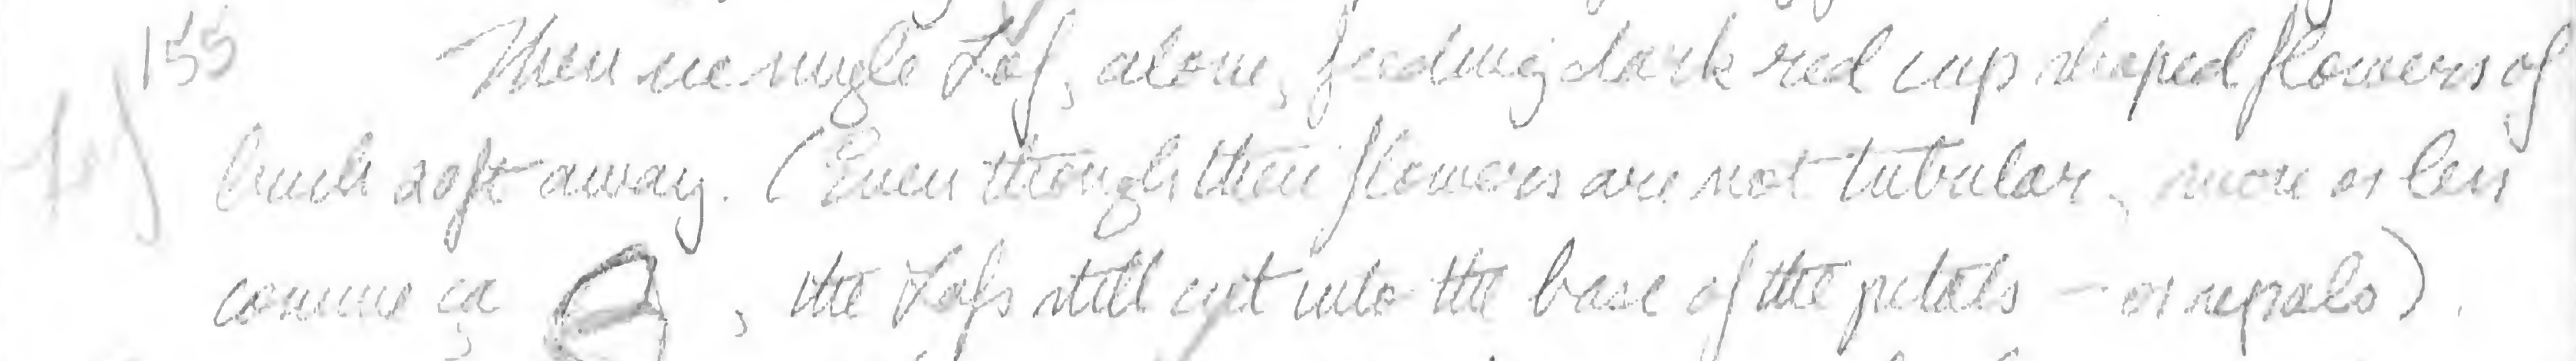 155 Then see single Laf, alone, feeding dark red cup shaped flowers of
Laf bush 20 ft away. (Even though their flowers are not tubular, more or less
comme ça , the Lafs still cut into the base of the petals – or sepals).